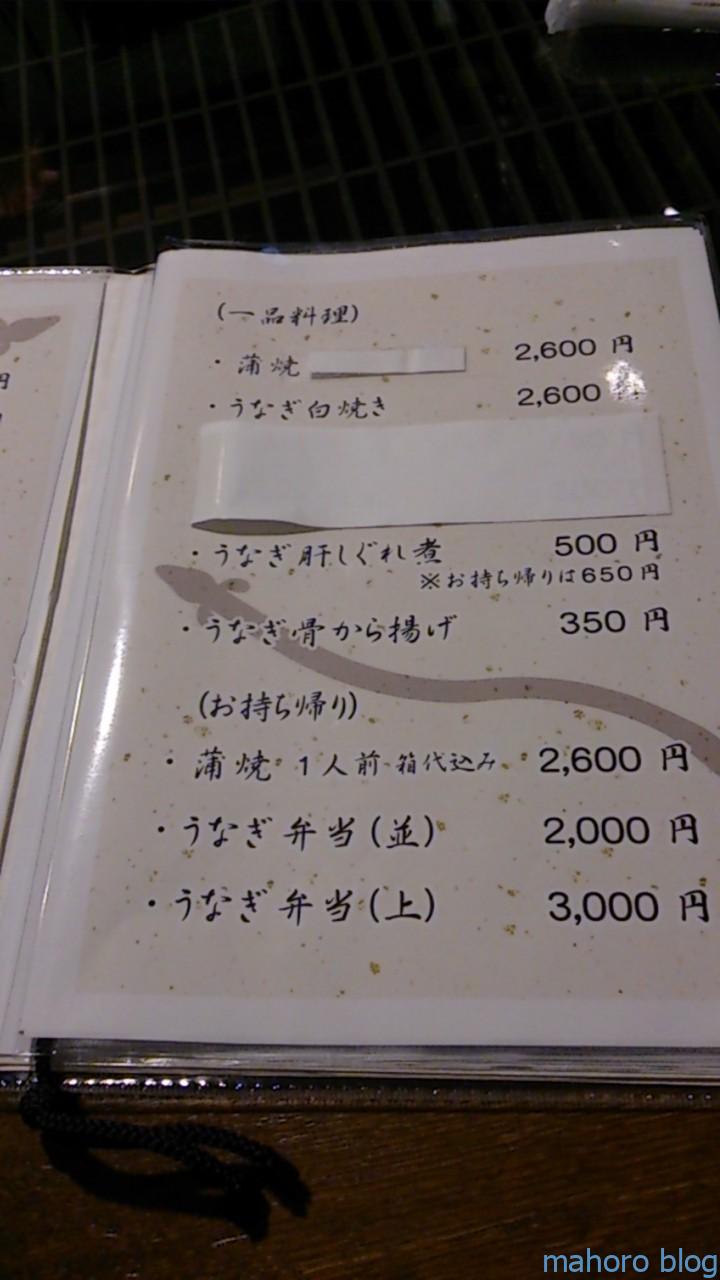 (一品料理)
・蒲焼 2,600 円
・うなぎ白焼き 2,600 円
・うなぎ肝しぐれ煮 500 円
※お持ち帰りは650円
・うなぎ骨から揚げ 350 円
(お持ち帰り)
・蒲焼 1人前 箱代込み 2,600 円
・うなぎ弁当(並) 2,000 円
・うなぎ弁当(上) 3,000 円
円
mahoro blog